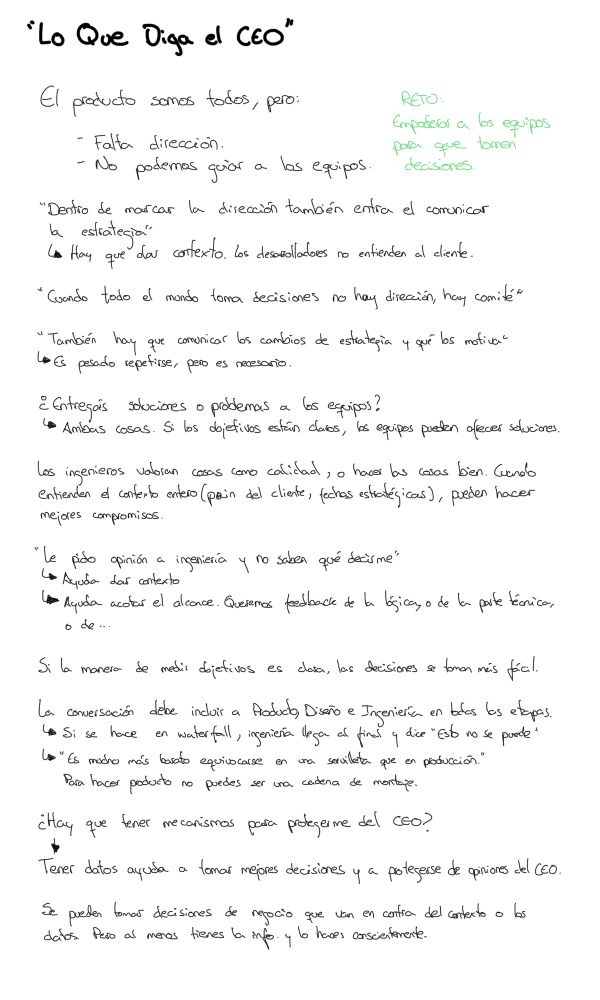 "Lo Que Diga el CEO"
El producto somos todos, pero:
- Falta dirección.
- No podemos guiar a los equipos.
RETO:
Empoderar a los equipos
para que tomen
decisiones.
"Dentro de marcar la dirección también entra el comunicar
la estrategia"
↳ Hay que dar contexto. Los desarrolladores no entienden al cliente.
"Cuando todo el mundo toma decisiones no hay dirección, hay comité"
"También hay que comunicar los cambios de estrategia y qué los motiva."
↳ Es pesado repetirse, pero es necesario.
¿Entregáis soluciones o problemas a los equipos?
↳ Ambas cosas. Si los objetivos están claros, los equipos pueden ofrecer soluciones.
Los ingenieros valoran cosas como calidad, o hacer las cosas bien. Cuando
entienden el contexto entero (pain del cliente, fechas estratégicas), pueden hacer
mejores compromisos.
"Le pido opinión a ingeniería y no saben qué decirme"
↳ Ayuda dar contexto
↳ Ayuda acotar el alcance. Queremos feedback de la lógica, o de la parte técnica,
o de ...
Si la manera de medir objetivos es clara, las decisiones se toman más fácil.
La conversación debe incluir a Producto, Diseño e Ingeniería en todas las etapas.
↳ Si se hace en waterfall, ingeniería llega al final y dice "Esto no se puede"
↳ "Es mucho más barato equivocarse en una servilleta que en producción."
Para hacer producto no puedes ser una cadena de montaje.
¿Hay que tener mecanismos para protegerme del CEO?
↓
Tener datos ayuda a tomar mejores decisiones y a protegerse de opiniones del CEO.
Se pueden tomar decisiones de negocio que van en contra del contexto o los
datos. Pero al menos tienes la info. y lo haces conscientemente.